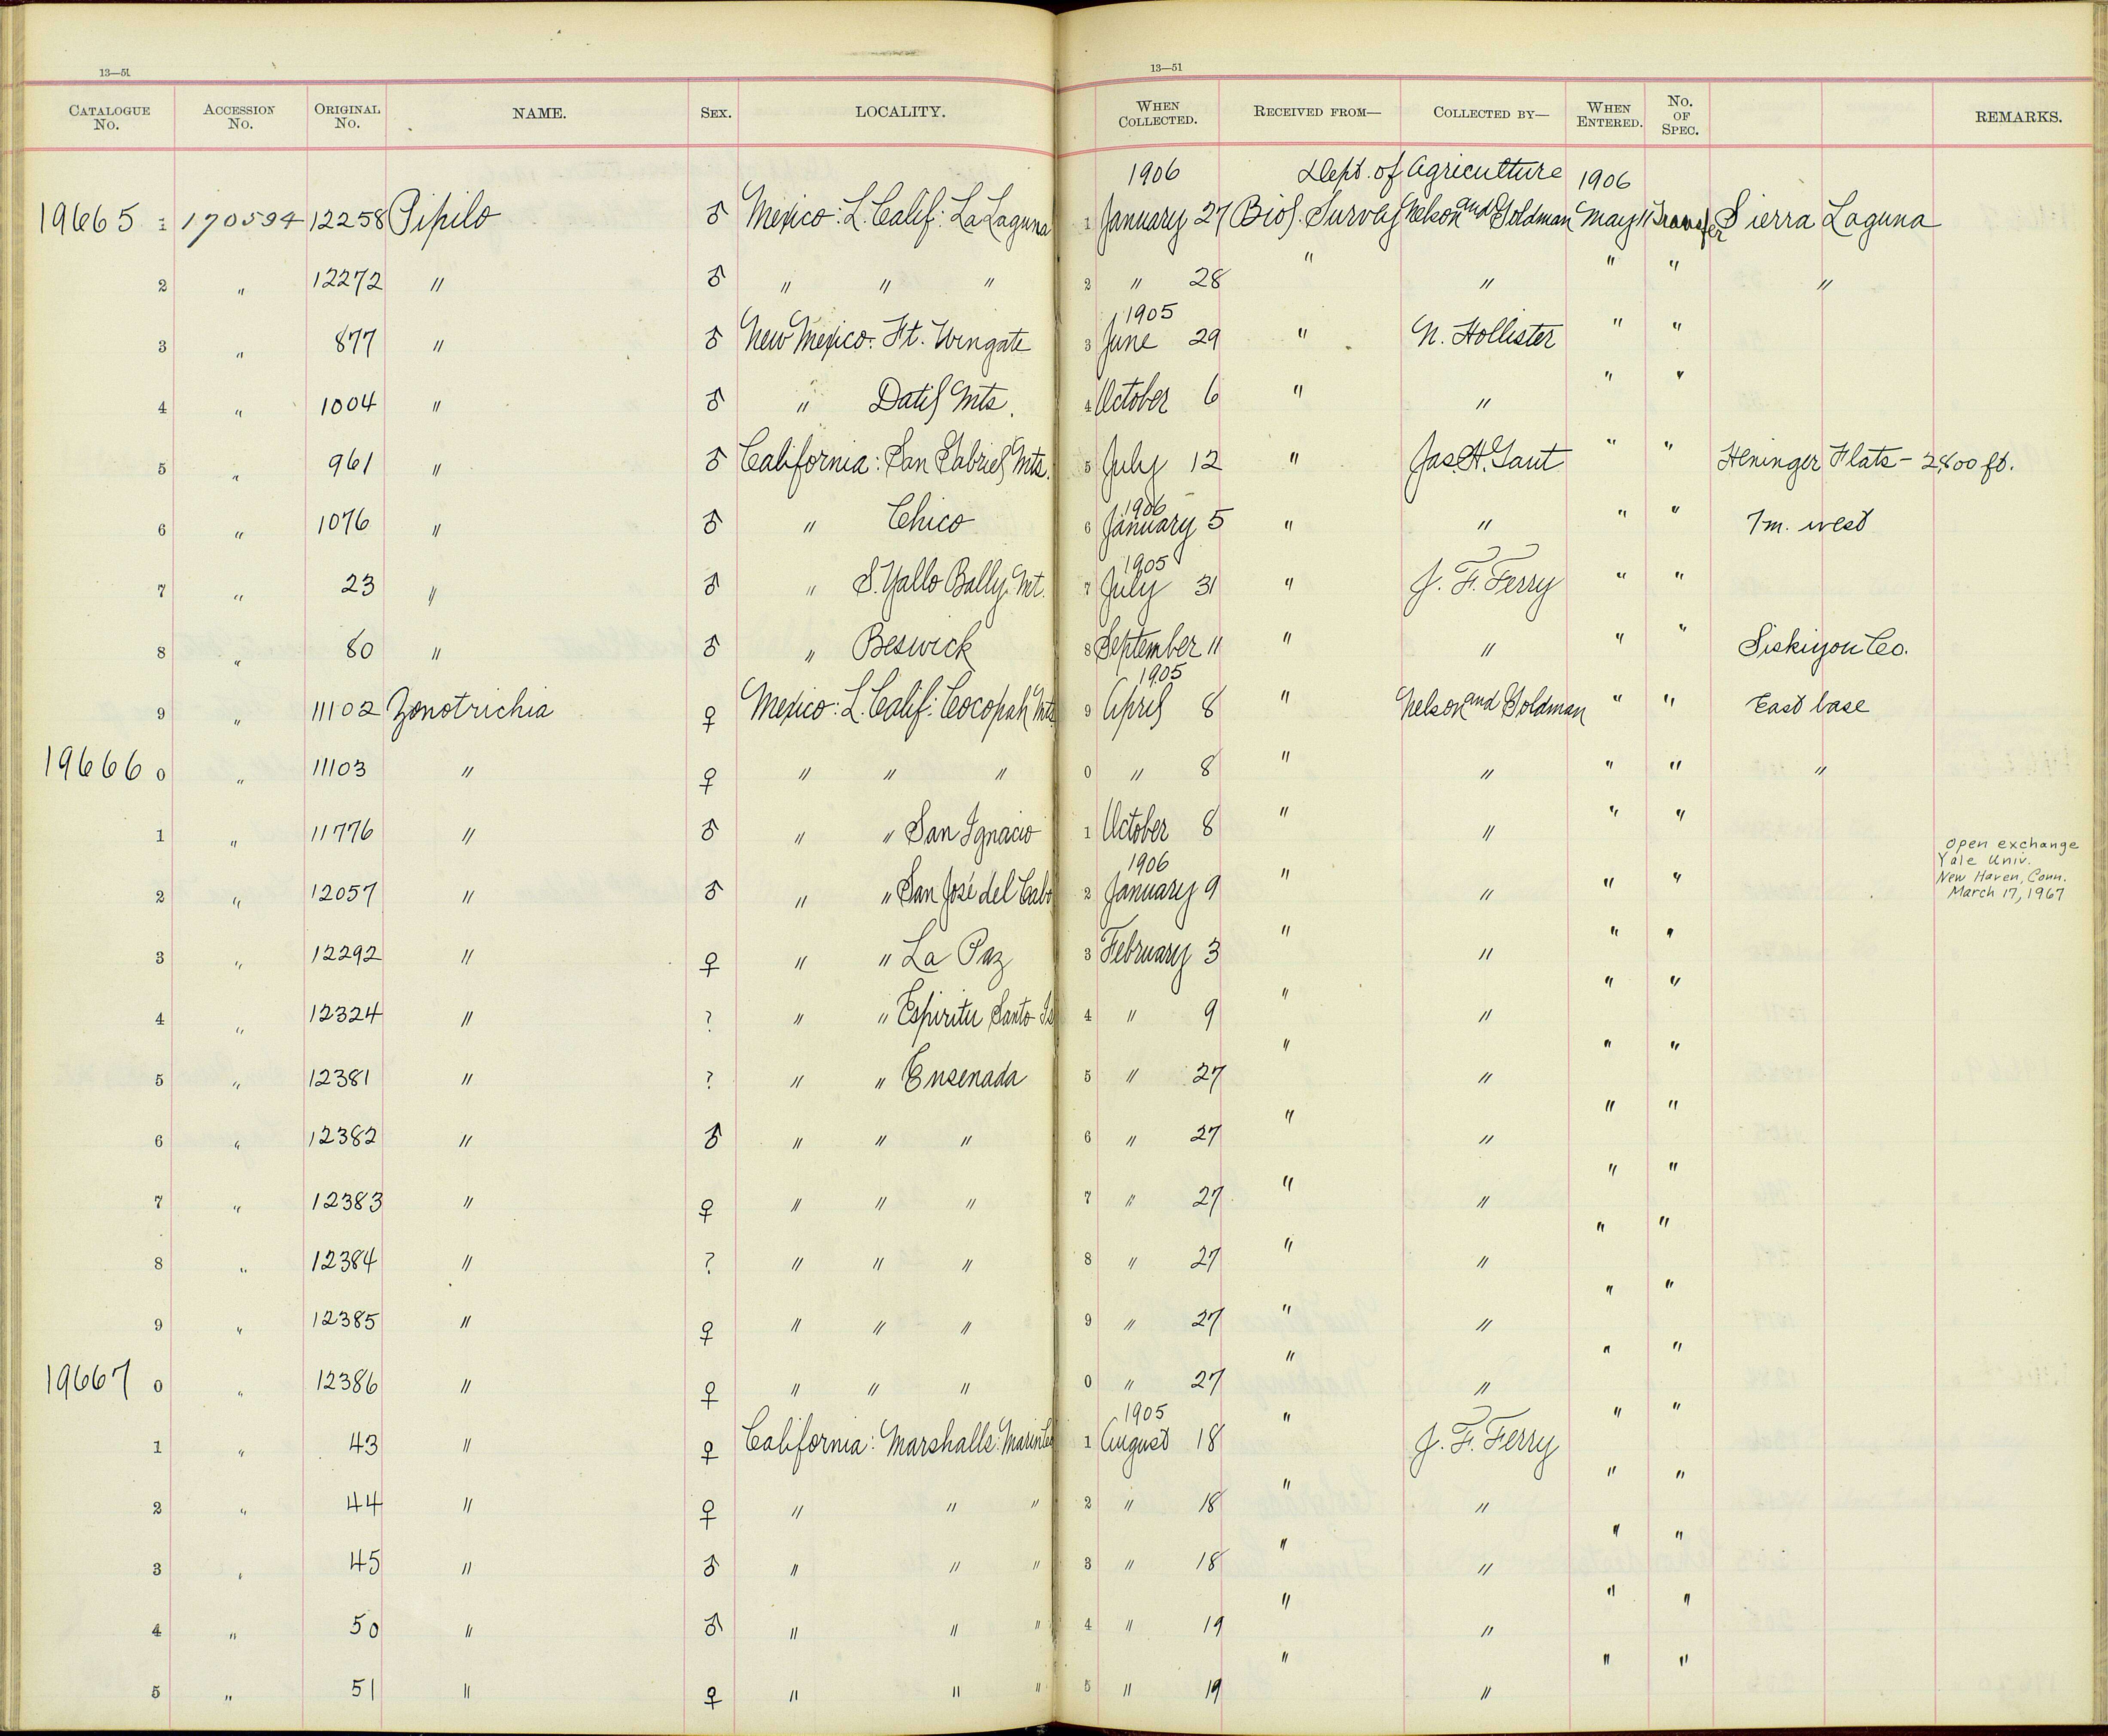 13—51
13—51
CATALOGUE No. ACCESSION No. ORIGINAL No. NAME. SEX. LOCALITY. WHEN COLLECTED. RECEIVED FROM— COLLECTED BY— WHEN ENTERED. No. OF SPEC. REMARKS.
1906 Dept. of Agriculture 1906
19665 1 170594 12258 Pipilo ♂ Mexico: L. Calif: La Laguna 1 January 27 Biol. Survey Nelson and Goldman May 11 Transfer Sierra Laguna
2 " 12272 " ♂ " " " 2 " 28 " " " " "
1905
3 " 877 " ♂ New Mexico: Ft. Wingate 3 June 29 " N. Hollister " "
4 " 1004 " ♂ " Datil Mts. 4 October 6 " " " "
5 " 961 " ♂ California: San Gabriel Mts. 5 July 12 " Jas. H. Gaut " " Heninger Flats - 2800 ft.
1906
6 " 1076 " ♂ " Chico 6 January 5 " " " " 7 m. west
1905
7 " 23 " ♂ " S. Yallo Bally Mt. 7 July 31 " J. F. Ferry " "
8 " 80 " ♂ " Beswick 8 September 11 " " " " Siskiyou Co.
1905
9 " 11102 Zonotrichia ♀ Mexico: L. Calif: Cocopah Mts 9 April 8 " Nelson and Goldman " " East base
19666 0 " 11103 " ♀ " " " 0 " 8 " " " " "
1 " 11776 " ♂ " " San Ignacio 1 October 8 " " " "
1906
2 " 12057 " ♂ " " San José del Cabo 2 January 9 " " " " Open exchange
Yale Univ.
New Haven, Conn.
March 17, 1967
3 " 12292 " ♀ " " La Paz 3 February 3 " " " "
4 " 12324 " ? " " Espiritu Santo Is 4 " 9 " " " "
5 " 12381 " ? " " Ensenada 5 " 27 " " " "
6 " 12382 " ♂ " " " 6 " 27 " " " "
7 " 12383 " ♀ " " " 7 " 27 " " " "
8 " 12384 " ? " " " 8 " 27 " " " "
9 " 12385 " ♀ " " " 9 " 27 " " " "
19667 0 " 12386 " ♀ " " " 0 " 27 " " " "
1905
1 " 43 " ♀ California: Marshalls: Marin Co 1 August 18 " J. F. Ferry " "
2 " 44 " ♀ " " " 2 " 18 " " " "
3 " 45 " ♂ " " " 3 " 18 " " " "
4 " 50 " ♂ " " " 4 " 19 " " " "
5 " 51 " ♀ " " " 5 " 19 " " " "